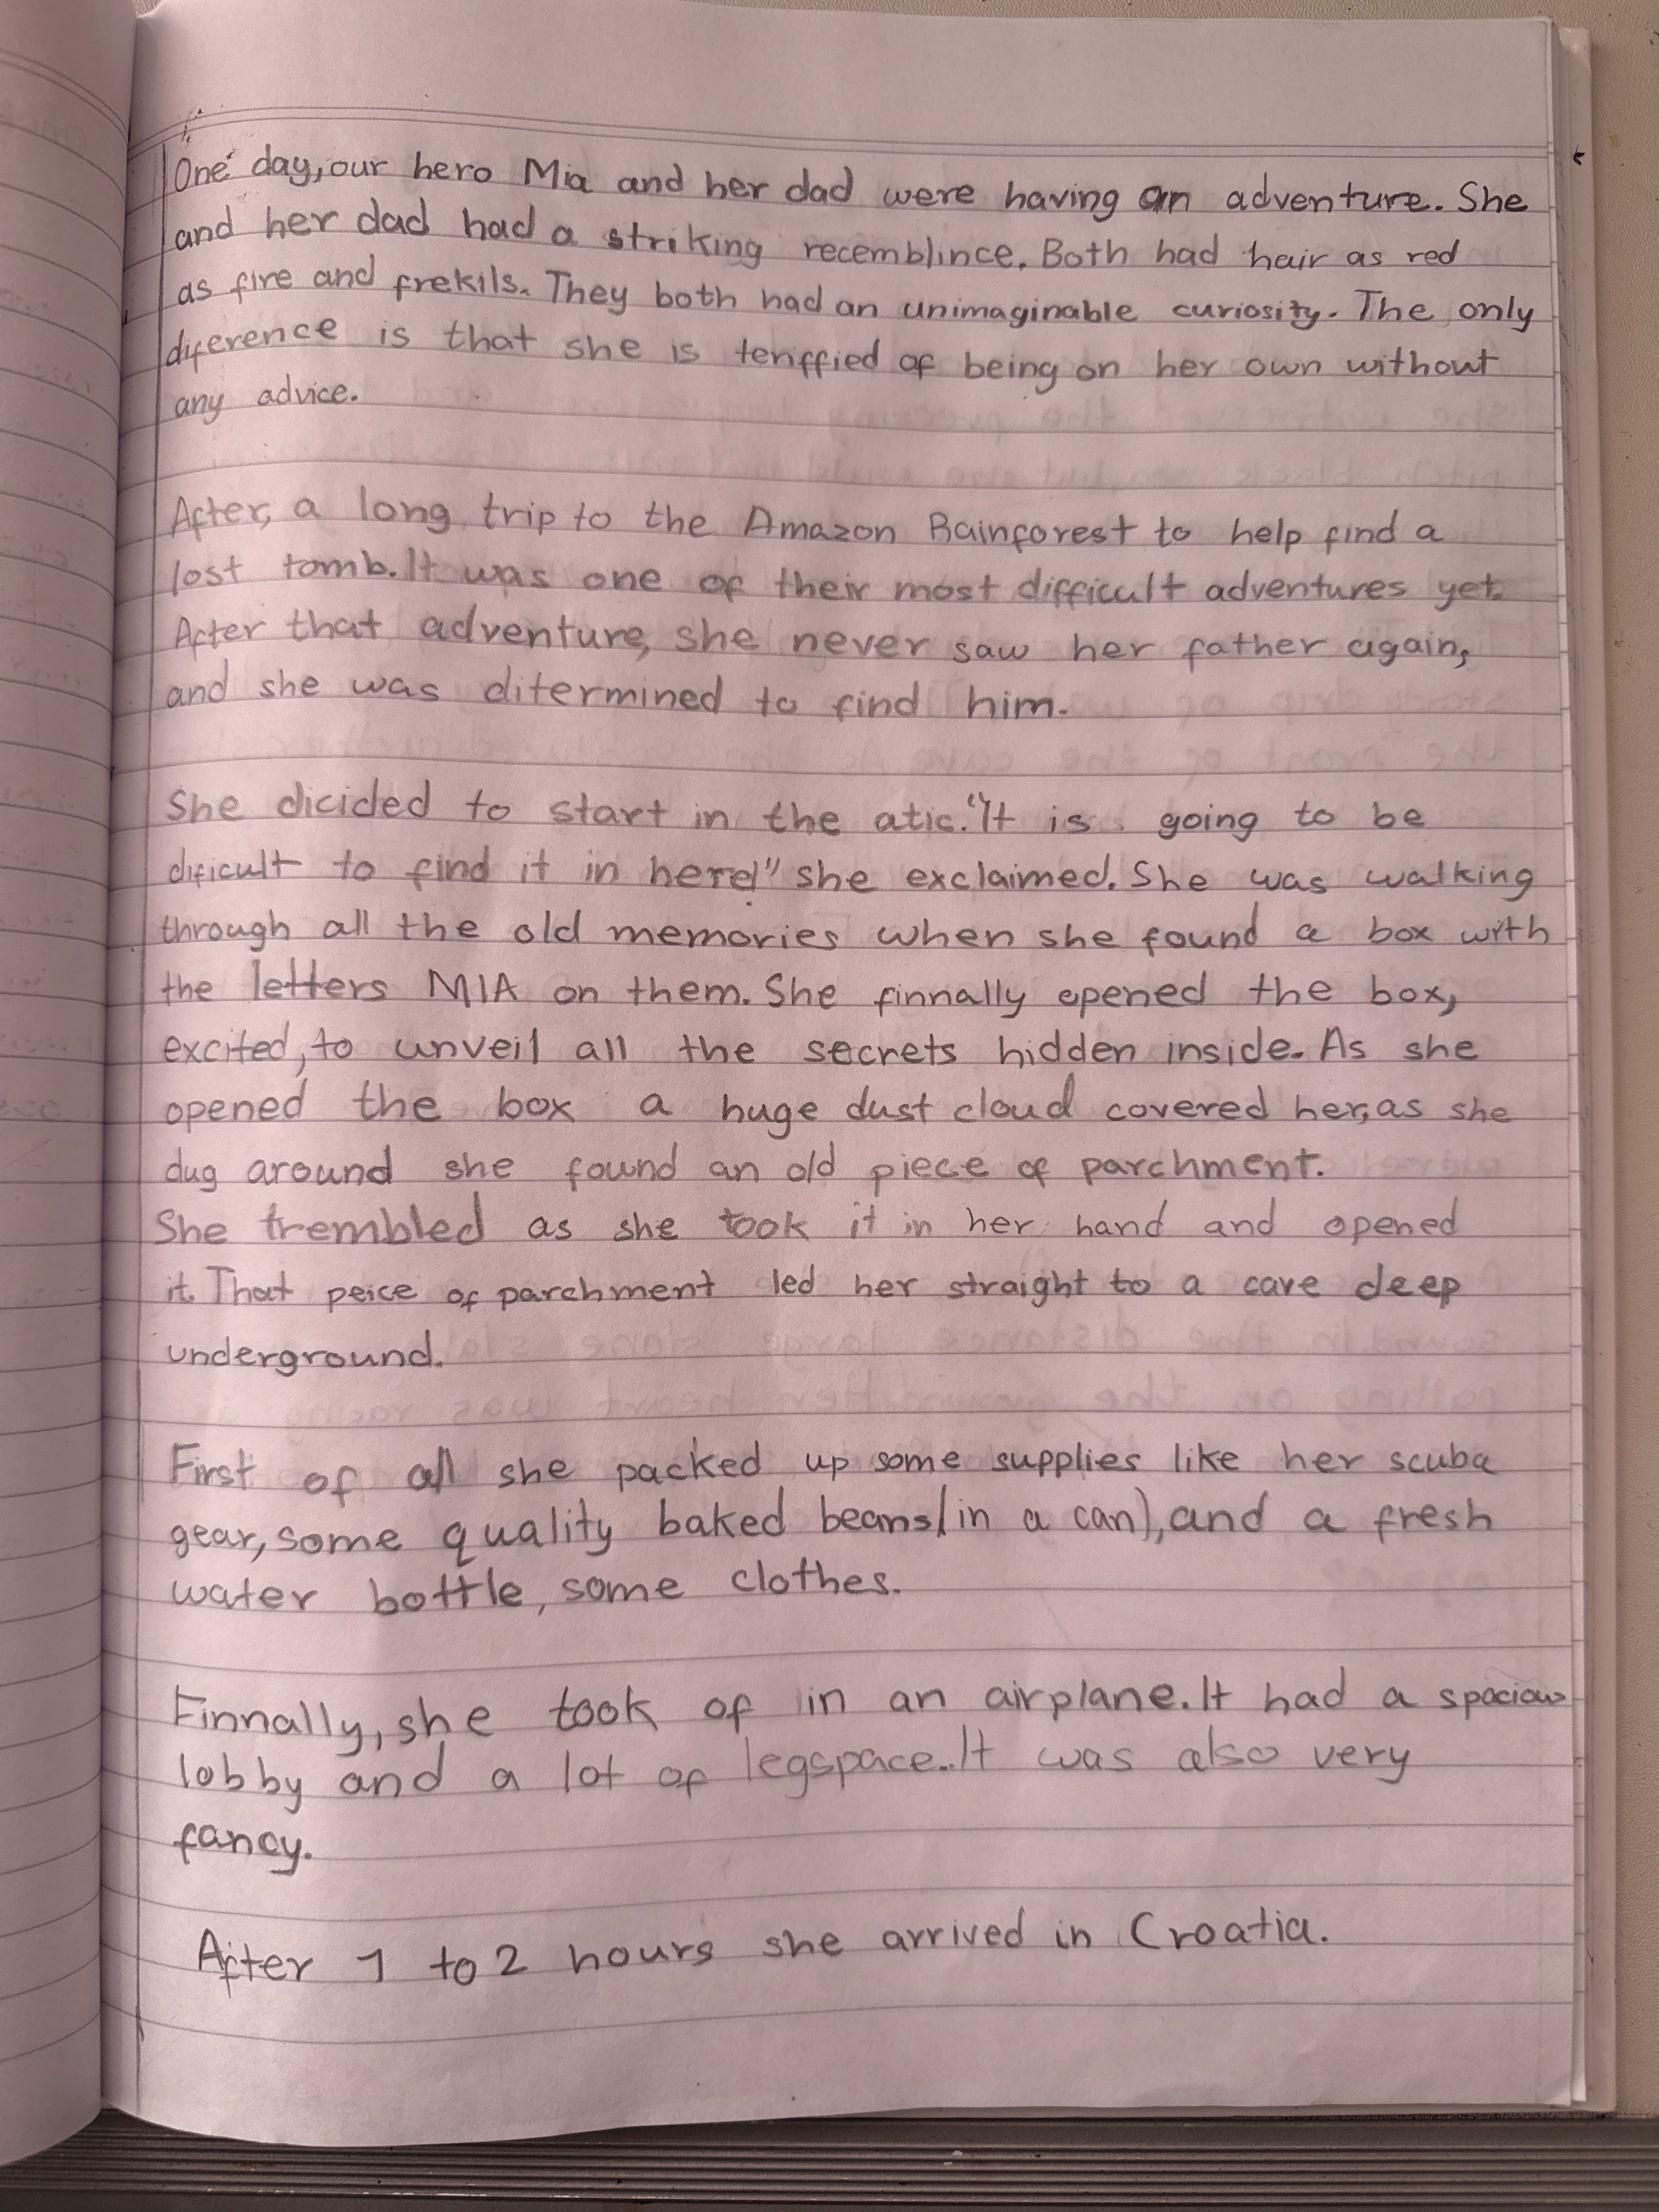 One day, our hero Mia and her dad were having an adventure. She
and her dad had a striking recemblince. Both had hair as red
as fire and frekils. They both had an unimaginable curiosity. The only
diference is that she is teriffied of being on her own without
any advice.
After, a long trip to the Amazon Rainforest to help find a
lost tomb. It was one of their most difficult adventures yet.
After that adventure, she never saw her father again,
and she was ditermined to find him.
She dicided to start in the atic. "It is going to be
dificult to find it in here!" she exclaimed. She was walking
through all the old memories when she found a box with
the letters MIA on them. She finnally opened the box,
excited, to unveil all the secrets hidden inside. As she
opened the box a huge dust cloud covered her, as she
dug around she found an old piece of parchment.
She trembled as she took it in her hand and opened
it. That peice of parchment led her straight to a cave deep
underground.
First of all she packed up some supplies like her scuba
gear, some quality baked beans (in a can), and a fresh
water bottle, some clothes.
Finnally, she took of in an airplane. It had a spacious
lobby and a lot of legspace. It was also very
fancy.
After 1 to 2 hours she arrived in Croatia.